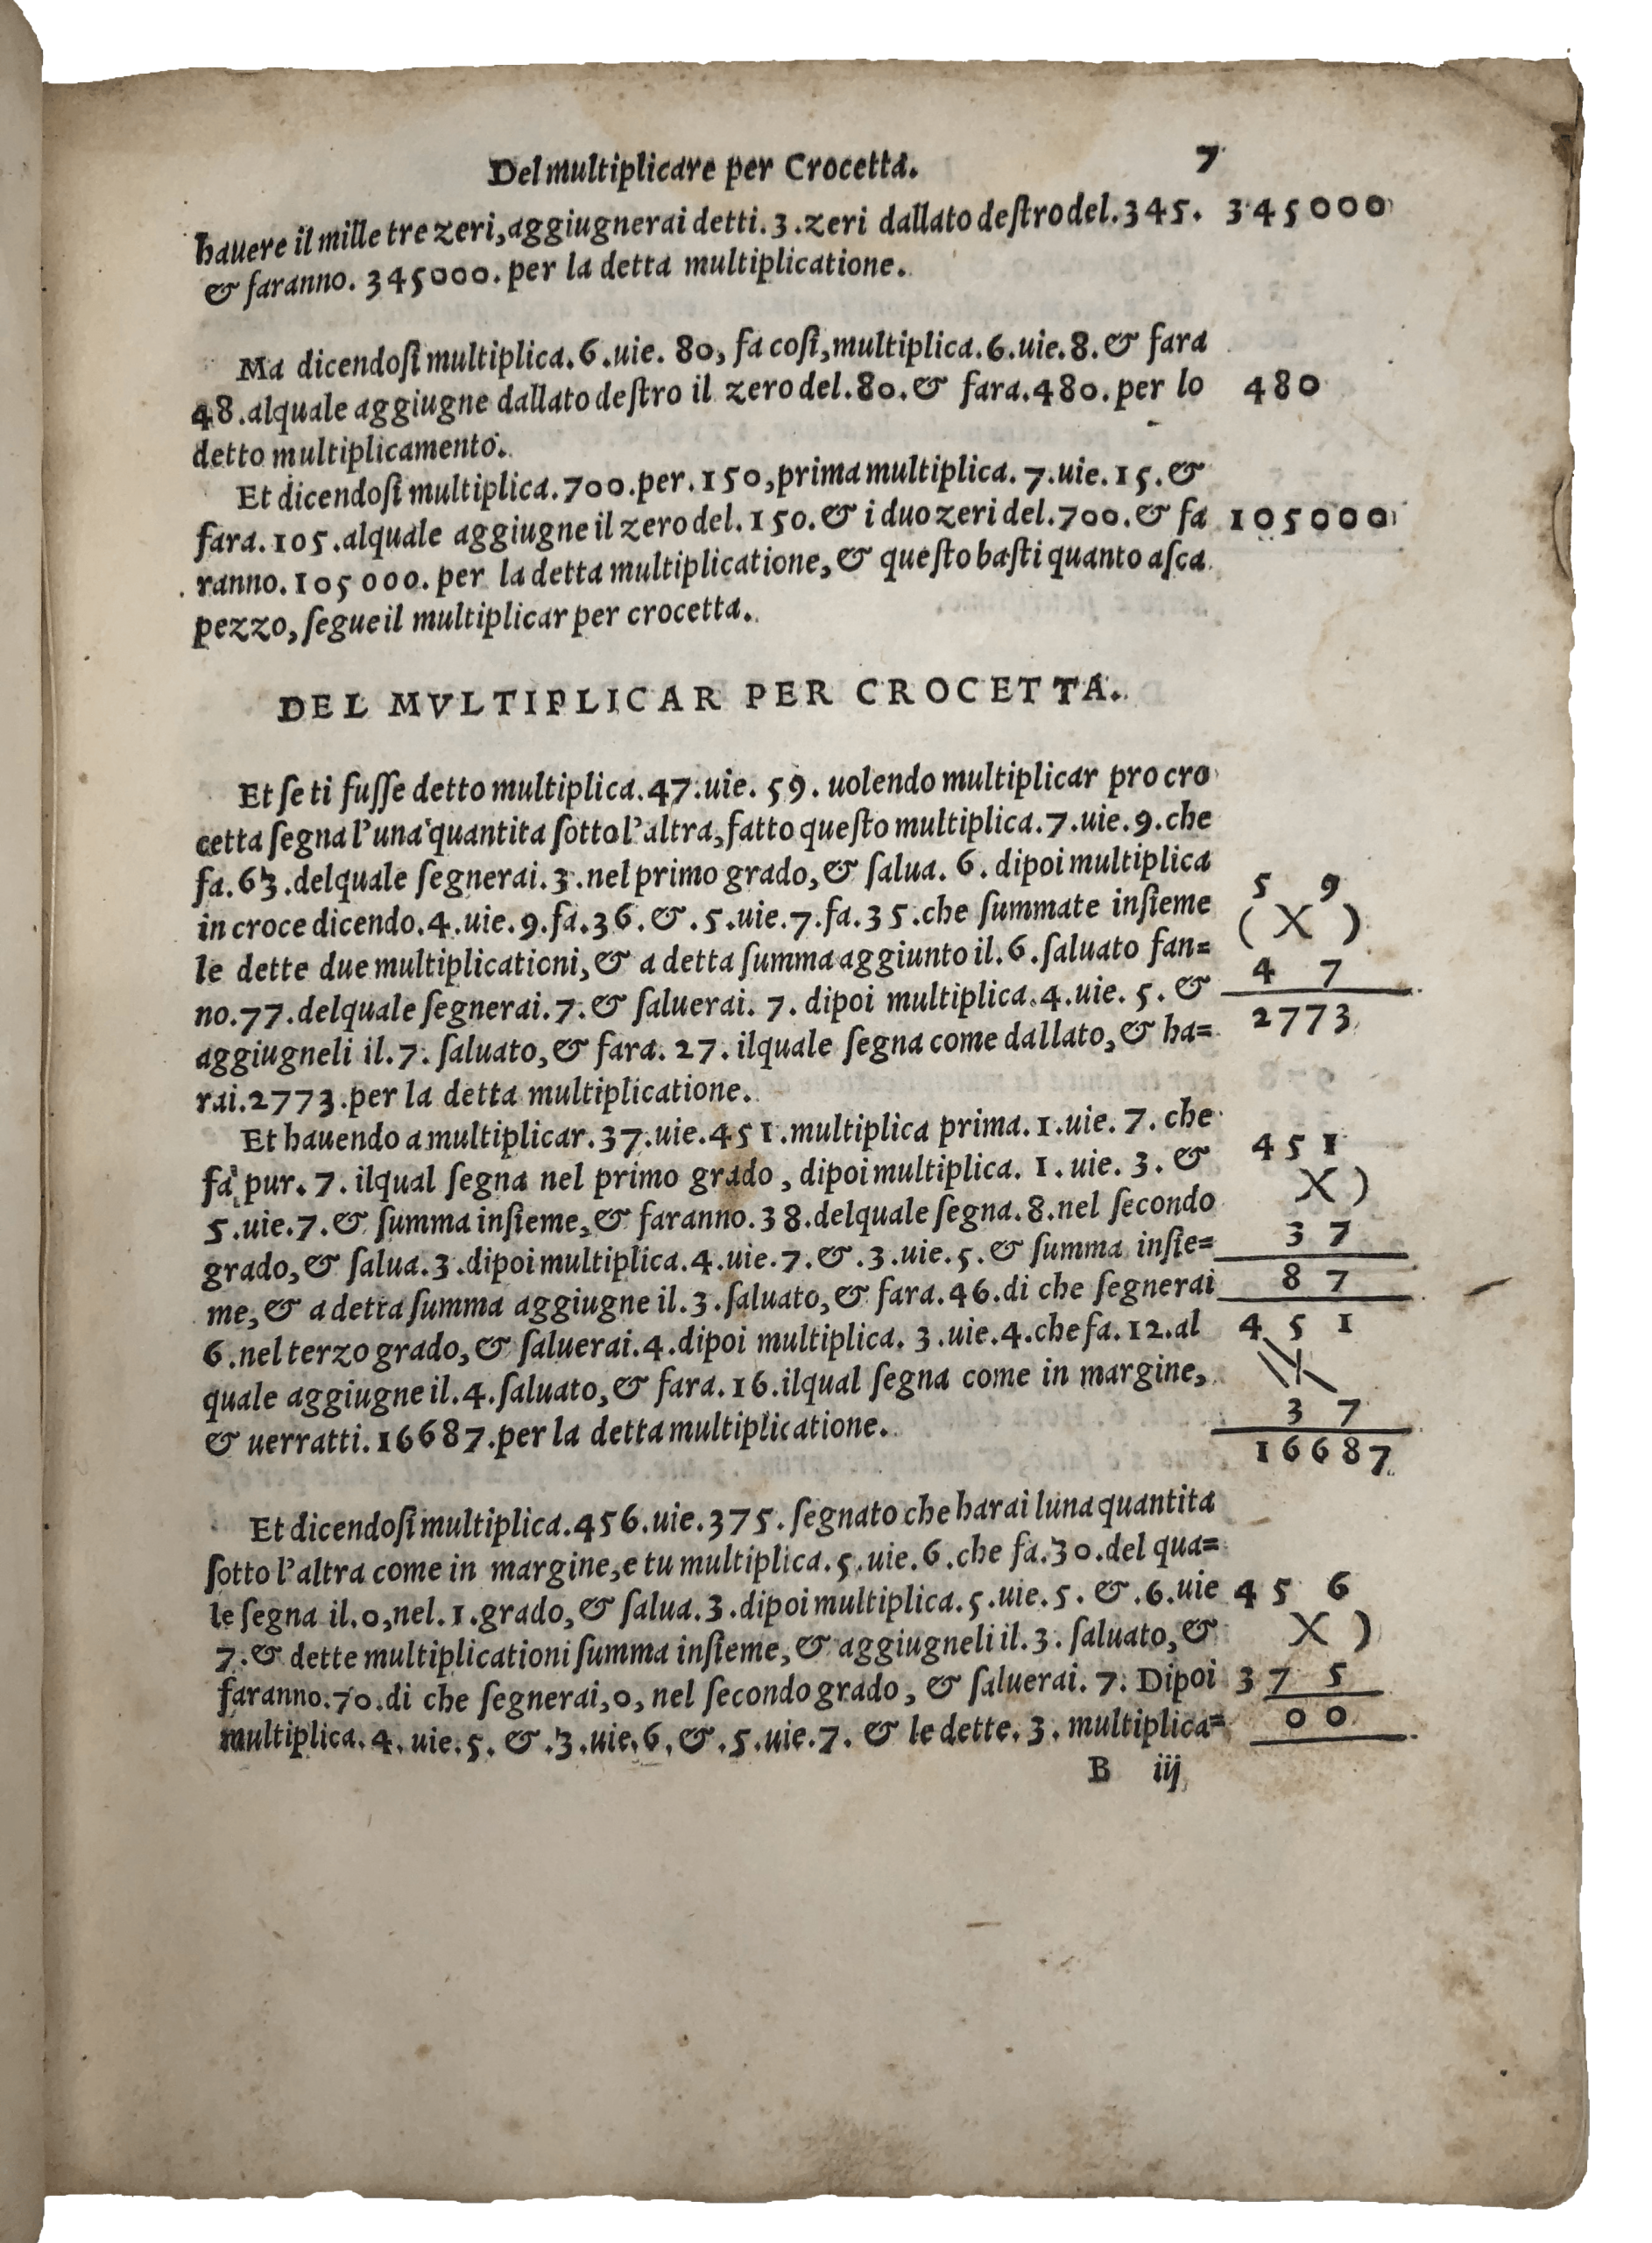 Del multiplicare per Crocetta. 7
hauere il mille tre zeri, aggiugnerai detti. 3. zeri dallato deſtro del. 345. 345000
& faranno. 345000. per la detta multiplicatione.
Ma dicendoſi multiplica. 6. uie. 80, fa coſi, multiplica. 6. uie. 8. & fara
48. alquale aggiugne dallato deſtro il zero del. 80. & fara. 480. per lo 480
detto multiplicamento.
Et dicendoſi multiplica. 700. per. 150, prima multiplica. 7. uie. 15. &
fara. 105. alquale aggiugne il zero del. 150. & i duo zeri del. 700. & fa 105000
ranno. 105000. per la detta multiplicatione, & queſto baſti quanto aſca
pezzo, ſegue il multiplicar per crocetta.
DEL MVLTIPLICAR PER CROCETTA.
Et ſe ti fuſſe detto multiplica. 47. uie. 59. uolendo multiplicar pro cro
cetta ſegna l'una quantita ſotto l'altra, fatto queſto multiplica. 7. uie. 9. che
fa. 63. delquale ſegnerai. 3. nel primo grado, & ſalua. 6. dipoi multiplica
in croce dicendo. 4. uie. 9. fa. 36. &. 5. uie. 7. fa. 35. che ſummate inſieme
le dette due multiplicationi, & a detta ſumma aggiunto il. 6. ſaluato fan=
no. 77. delquale ſegnerai. 7. & ſaluerai. 7. dipoi multiplica. 4. uie. 5. &
aggiugneli il. 7. ſaluato, & fara. 27. ilquale ſegna come dallato, & ha=
rai. 2773. per la detta multiplicatione.
5 9
( X )
4 7
2773
Et hauendo a multiplicar. 37. uie. 451. multiplica prima. 1. uie. 7. che
fa pur. 7. ilqual ſegna nel primo grado, dipoi multiplica. 1. uie. 3. &
5. uie. 7. & ſumma inſieme, & faranno. 38. delquale ſegna. 8. nel ſecondo
grado, & ſalua. 3. dipoi multiplica. 4. uie. 7. &. 3. uie. 5. & ſumma inſie=
me, & a detta ſumma aggiugne il. 3. ſaluato, & fara. 46. di che ſegnerai
6. nel terzo grado, & ſaluerai. 4. dipoi multiplica. 3. uie. 4. che fa. 12. al
quale aggiugne il. 4. ſaluato, & fara. 16. ilqual ſegna come in margine,
& uerratti. 16687. per la detta multiplicatione.
4 5 1
X )
3 7
8 7
4 5 1
3 7
16687
Et dicendoſi multiplica. 456. uie. 375. ſegnato che harai luna quantita
ſotto l'altra come in margine, e tu multiplica. 5. uie. 6. che fa. 30. del qua=
le ſegna il. 0, nel. 1. grado, & ſalua. 3. dipoi multiplica. 5. uie. 5. &. 6. uie
7. & dette multiplicationi ſumma inſieme, & aggiugneli il. 3. ſaluato, &
faranno. 70. di che ſegnerai, 0, nel ſecondo grado, & ſaluerai. 7. Dipoi
multiplica. 4. uie. 5. &. 3. uie. 6. &. 5. uie. 7. & le dette. 3. multiplica=
4 5 6
X )
3 7 5
0 0
B iij